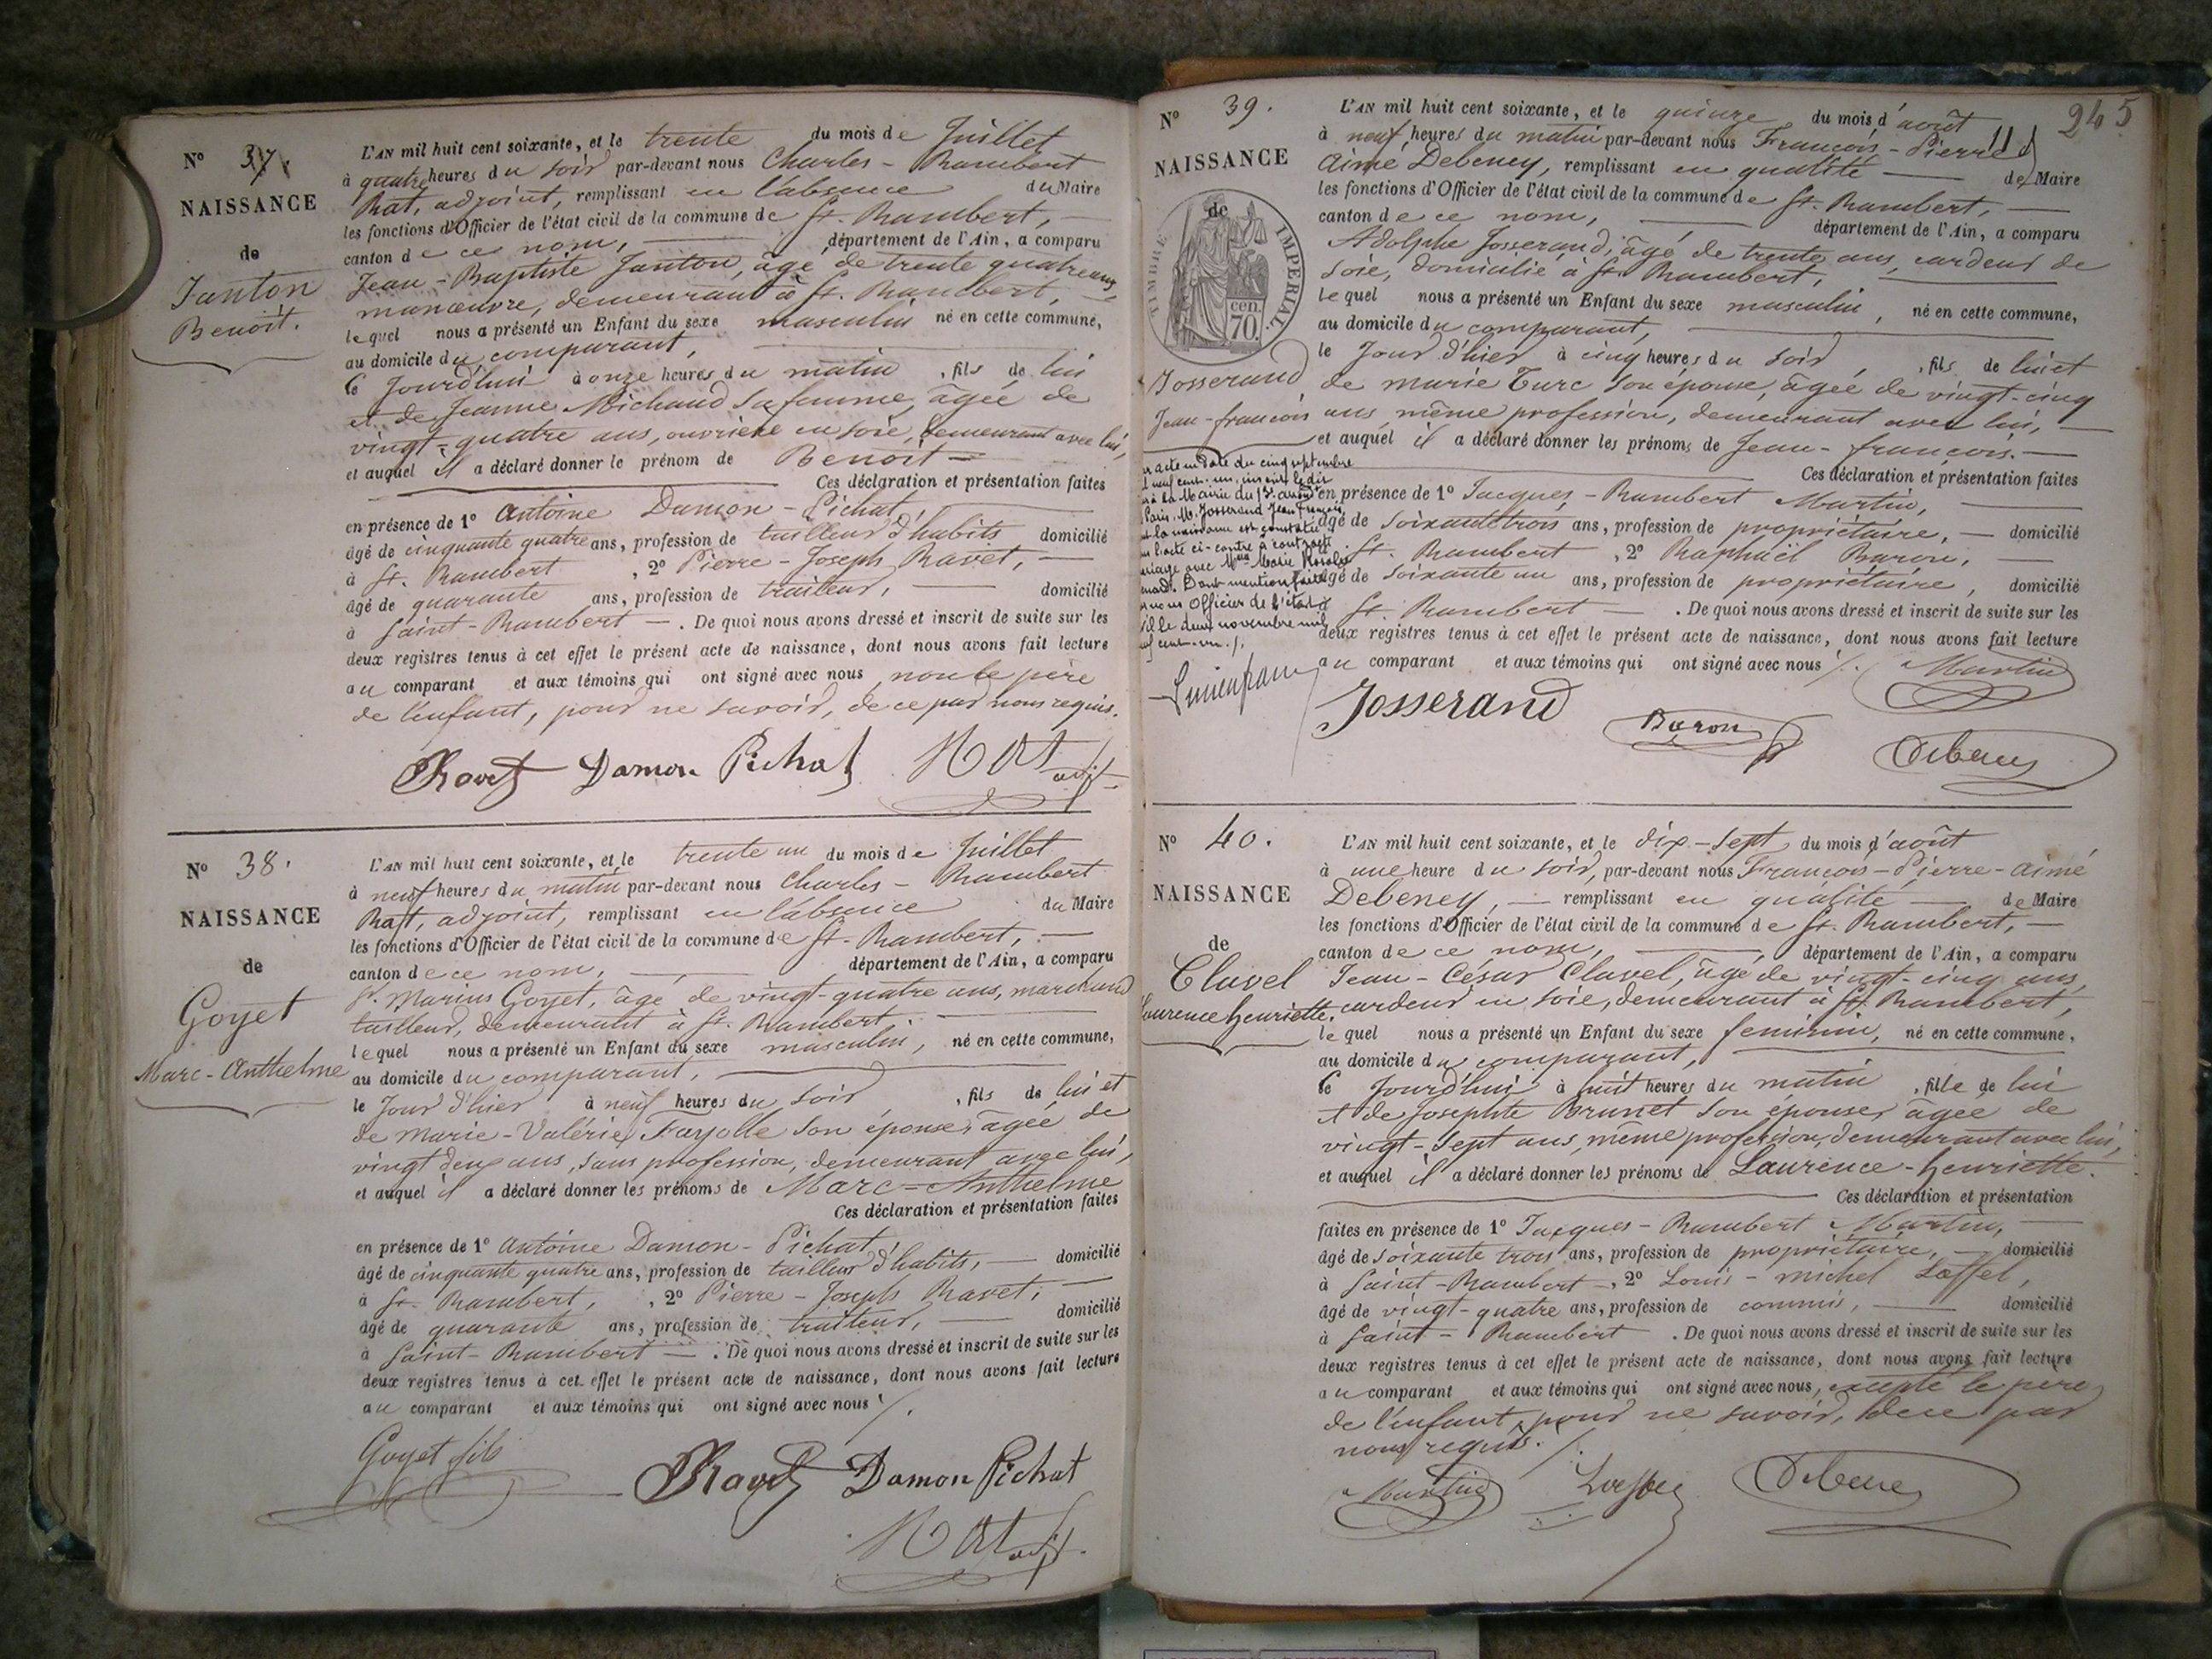 Nº 37.
NAISSANCE
de
Janton
Benoit.
L'AN mil huit cent soixante, et le trente du mois de Juillet
à quatre heures du soir par-devant nous Charles - Rambert
Rat, adjoint, remplissant en l'absence du Maire
les fonctions d'Officier de l'état civil de la commune de St. Rambert,
canton de ce nom, département de l'Ain, a comparu
Jean - Baptiste Janton, âgé de trente quatre ans,
manœuvre, demeurant à St. Rambert,
lequel nous a présenté un Enfant du sexe masculin né en cette commune,
au domicile du comparant,
Ce Jourd'hui à onze heures du matin, fils de lui
et de Jeanne Michaud sa femme, âgée de
vingt-quatre ans, ouvrière en soie, demeurant avec lui,
et auquel il a déclaré donner le prénom de Benoit
Ces déclaration et présentation faites
en présence de 1º Antoine Damon - Pichat,
âgé de cinquante quatre ans, profession de tailleur d'habits domicilié
à St. Rambert, 2º Pierre - Joseph Ravet,
âgé de quarante ans, profession de traiteur, domicilié
à Saint - Rambert. De quoi nous avons dressé et inscrit de suite sur les
deux registres tenus à cet effet le présent acte de naissance, dont nous avons fait lecture
au comparant et aux témoins qui ont signé avec nous, non le père
de l'enfant, pour ne savoir, de ce par nous requis.
Ravet Damon Pichat Rat adjt
Nº 38.
NAISSANCE
de
Goyet
Marc - Anthelme
L'AN mil huit cent soixante, et le trente un du mois de Juillet
à neuf heures du matin par-devant nous Charles - Rambert
Rat, adjoint, remplissant en l'absence du Maire
les fonctions d'Officier de l'état civil de la commune de St. Rambert,
canton de ce nom, département de l'Ain, a comparu
Sr. Marius Goyet, âgé de vingt-quatre ans, marchand
tailleur, demeurant à St. Rambert
lequel nous a présenté un Enfant du sexe masculin, né en cette commune,
au domicile du comparant,
le Jour d'hier à neuf heures du soir, fils de lui et
de Marie - Valérie Fayolle son épouse, âgée de
vingt deux ans, sans profession, demeurant avec lui,
et auquel il a déclaré donner les prénoms de Marc - Anthelme
Ces déclaration et présentation faites
en présence de 1º Antoine Damon - Pichat,
âgé de cinquante quatre ans, profession de tailleur d'habits, domicilié
à St. Rambert, 2º Pierre - Joseph Ravet,
âgé de quarante ans, profession de traiteur, domicilié
à Saint - Rambert. De quoi nous avons dressé et inscrit de suite sur les
deux registres tenus à cet effet le présent acte de naissance, dont nous avons fait lecture
au comparant et aux témoins qui ont signé avec nous ./.
Goyet fils Ravet Damon Pichat
Rat adjt
245
Nº 39.
NAISSANCE
de
TIMBRE IMPERIAL.
70. cen.
Josserand
Jean - françois
L'AN mil huit cent soixante, et le quinze du mois d'août
à neuf heures du matin par-devant nous François - Pierre
Aimé Debeney, remplissant en qualité de Maire
les fonctions d'Officier de l'état civil de la commune de St. Rambert,
canton de ce nom, département de l'Ain, a comparu
Adolphe Josserand, âgé de trente ans, cardeur de
soie, domicilié à St. Rambert,
lequel nous a présenté un Enfant du sexe masculin, né en cette commune,
au domicile du comparant,
le Jour d'hier à cinq heures du soir, fils de lui et
de Marie Turc son épouse, âgée de vingt-cinq
ans, même profession, demeurant avec lui,
et auquel il a déclaré donner les prénoms de Jean - françois.
Ces déclaration et présentation faites
en présence de 1º Jacques - Rambert Martin,
âgé de soixante trois ans, profession de propriétaire, domicilié
St. Rambert, 2º Raphaël Baron,
âgé de soixante un ans, profession de propriétaire, domicilié
St. Rambert. De quoi nous avons dressé et inscrit de suite sur les
deux registres tenus à cet effet le présent acte de naissance, dont nous avons fait lecture
au comparant et aux témoins qui ont signé avec nous ./. Martin
Josserand Baron Debeney
acte en date du cinq septembre
neuf cent-un, inscrit le dix
à la Mairie du
Paris. M. Josserand Jean François,
la naissance est constatée
l'acte ci-contre a contracté
mariage avec Mlle Marie Rosalie
Dont mention faite
nous Officier de l'état
le deux novembre mil
neuf cent-un ./.
Nº 40.
NAISSANCE
de
Clavel
Laurence henriette.
L'AN mil huit cent soixante, et le dix - sept du mois d'août
à une heure du soir, par-devant nous François - Pierre - Aimé
Debeney, remplissant en qualité de Maire
les fonctions d'Officier de l'état civil de la commune de St. Rambert,
canton de ce nom, département de l'Ain, a comparu
Jean - César Clavel, âgé de vingt-cinq ans,
cardeur en soie, demeurant à St. Rambert,
lequel nous a présenté un Enfant du sexe feminin, né en cette commune,
au domicile du comparant,
Ce Jourd'hui à huit heures du matin, fille de lui
et de Josephte Brunet son épouse, âgée de
vingt - sept ans, même profession, demeurant avec lui,
et auquel il a déclaré donner les prénoms de Laurence - henriette.
Ces déclaration et présentation
faites en présence de 1º Jacques - Rambert Martin,
âgé de soixante trois ans, profession de propriétaire, domicilié
à Saint - Rambert, 2º Louis - Michel Lœffel,
âgé de vingt - quatre ans, profession de commis, domicilié
à Saint - Rambert. De quoi nous avons dressé et inscrit de suite sur les
deux registres tenus à cet effet le présent acte de naissance, dont nous avons fait lecture
au comparant et aux témoins qui ont signé avec nous, excepté le père
de l'enfant, pour ne savoir, de ce par
nous requis. /.
Martin Debeney